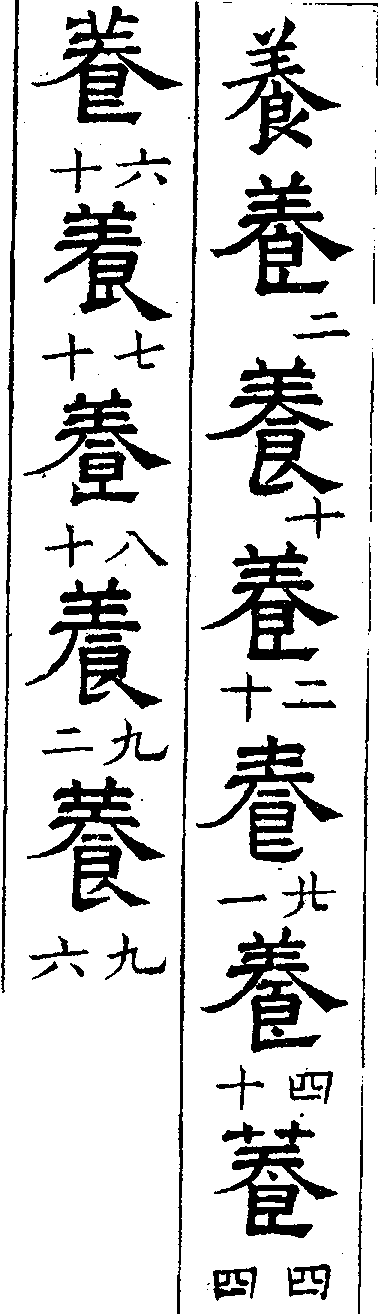 養養二養十養二十養廿一養四十養四四
養六十養七十養八十養九二養九六